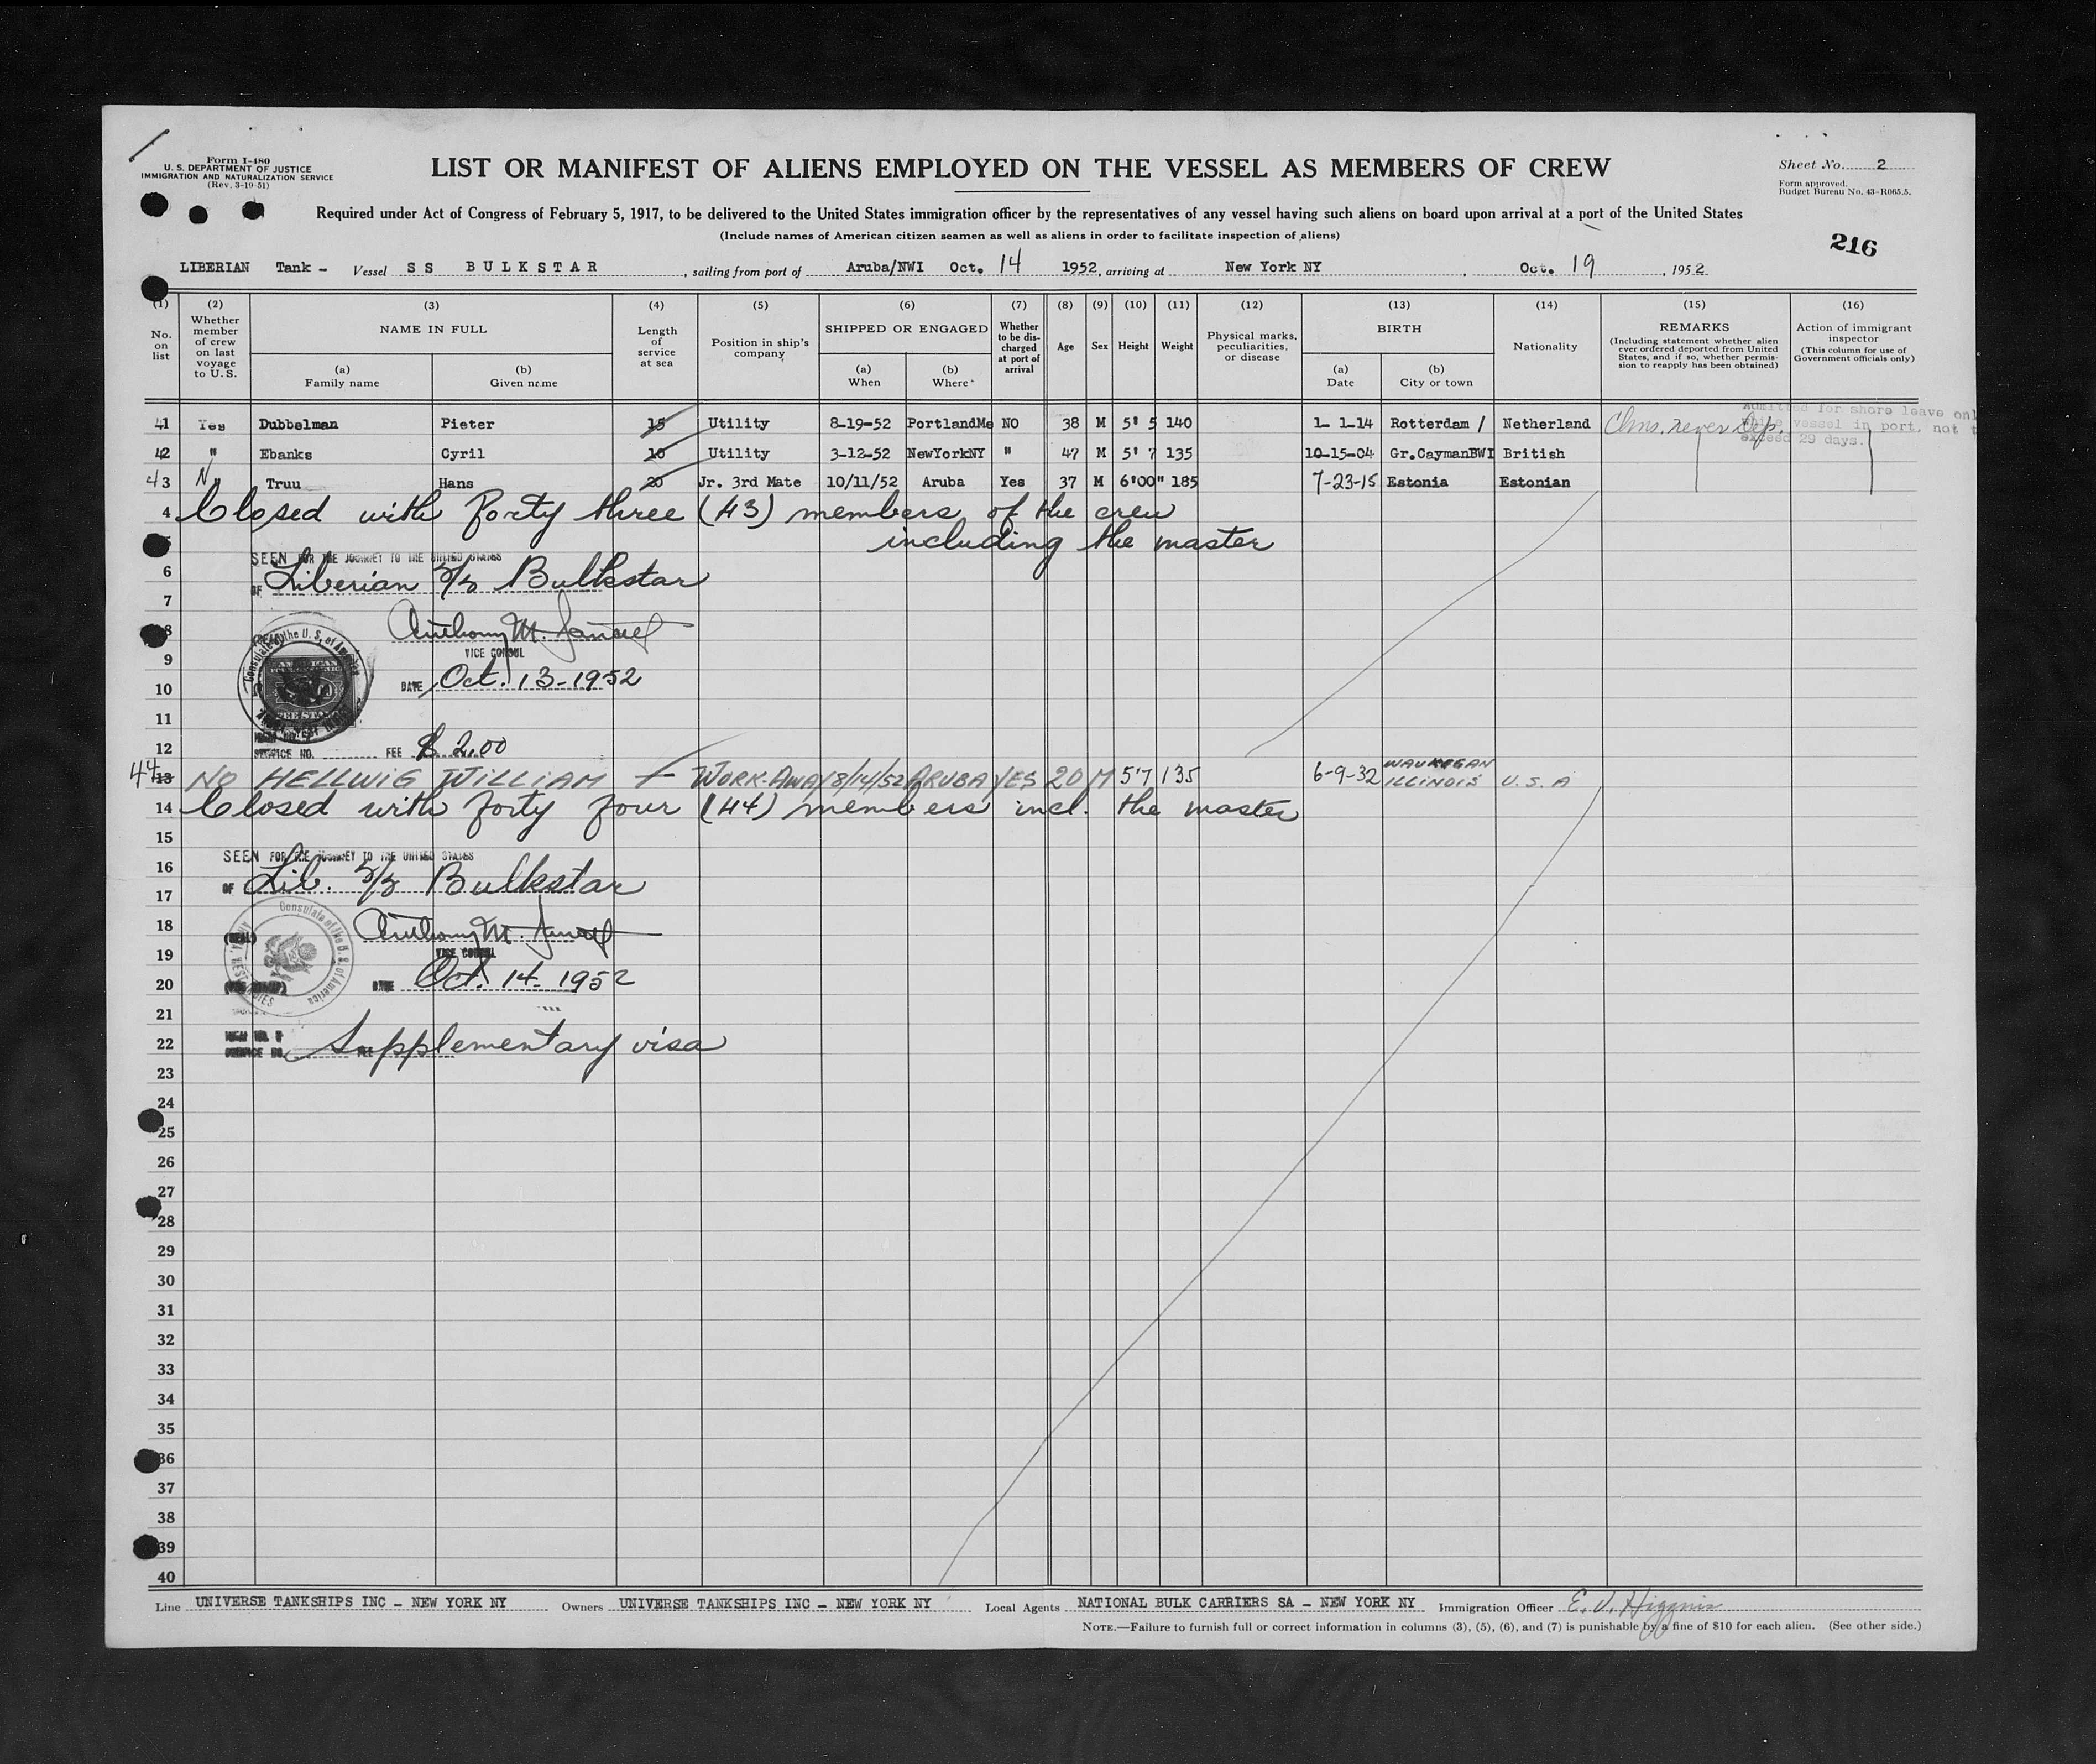 Form I-480
U. S. DEPARTMENT OF JUSTICE
IMMIGRATION AND NATURALIZATION SERVICE
(Rev. 3-19-51)
LIST OR MANIFEST OF ALIENS EMPLOYED ON THE VESSEL AS MEMBERS OF CREW
Sheet No. 2
Form approved.
Budget Bureau No. 43-R065.5.
Required under Act of Congress of February 5, 1917, to be delivered to the United States immigration officer by the representatives of any vessel having such aliens on board upon arrival at a port of the United States
(Include names of American citizen seamen as well as aliens in order to facilitate inspection of aliens)
216
LIBERIAN Tank - Vessel S S BULKSTAR, sailing from port of Aruba/NWI Oct. 14 1952, arriving at New York NY, Oct. 19, 1952
(1) No. on list
(2) Whether member of crew on last voyage to U.S.
(3) NAME IN FULL
(a) Family name
(b) Given name
(4) Length of service at sea
(5) Position in ship's company
(6) SHIPPED OR ENGAGED
(a) When
(b) Where*
(7) Whether to be discharged at port of arrival
(8) Age
(9) Sex
(10) Height
(11) Weight
(12) Physical marks, peculiarities, or disease
(13) BIRTH
(a) Date
(b) City or town
(14) Nationality
(15) REMARKS
(Including statement whether alien ever ordered deported from United States, and if so, whether permission to reapply has been obtained)
(16) Action of immigrant inspector
(This column for use of Government officials only)
41 Yes Dubbelman Pieter 15 Utility 8-19-52 PortlandMe NO 38 M 5' 5 140 1- 1-14 Rotterdam / Netherland Clms. never Dep.
Admitted for shore leave onl
vessel in port, not t
exceed 29 days.
42 " Ebanks Cyril 10 Utility 3-12-52 NewYorkNY " 47 M 5' 7 135 10-15-04 Gr.CaymanBWI British
43 N Truu Hans 20 Jr. 3rd Mate 10/11/52 Aruba Yes 37 M 6'00" 185 7-23-15 Estonia Estonian
4 Closed with forty three (43) members of the crew
including the master
SEEN FOR THE JOURNEY TO THE UNITED STATES
6
OF Liberian S/S Bulkstar
7
8 Anthony M.
VICE CONSUL
9
10 DATE Oct. 13-1952
11
12 SERVICE NO. FEE $ 2.00
44 13 NO HELLWIG WILLIAM WORK-AWAY 8/14/52 ARUBA YES 20 M 5'7 135 6-9-32 WAUKEGAN ILLINOIS U.S.A
14 Closed with forty four (44) members incl. the master
15
SEEN FOR THE JOURNEY TO THE UNITED STATES
16
OF Lib. S/S Bulkstar
17
Consulate of the U.S. of America
18 Anthony M.
(SEAL)
19 VICE CONSUL
20 DATE Oct. 14-1952
21
22 SERVICE NO. FEE Supplementary visa
23
24
25
26
27
28
29
30
31
32
33
34
35
36
37
38
39
40
Line UNIVERSE TANKSHIPS INC - NEW YORK NY Owners UNIVERSE TANKSHIPS INC - NEW YORK NY Local Agents NATIONAL BULK CARRIERS SA - NEW YORK NY Immigration Officer E. J. Higgins
NOTE.—Failure to furnish full or correct information in columns (3), (5), (6), and (7) is punishable by a fine of $10 for each alien. (See other side.)